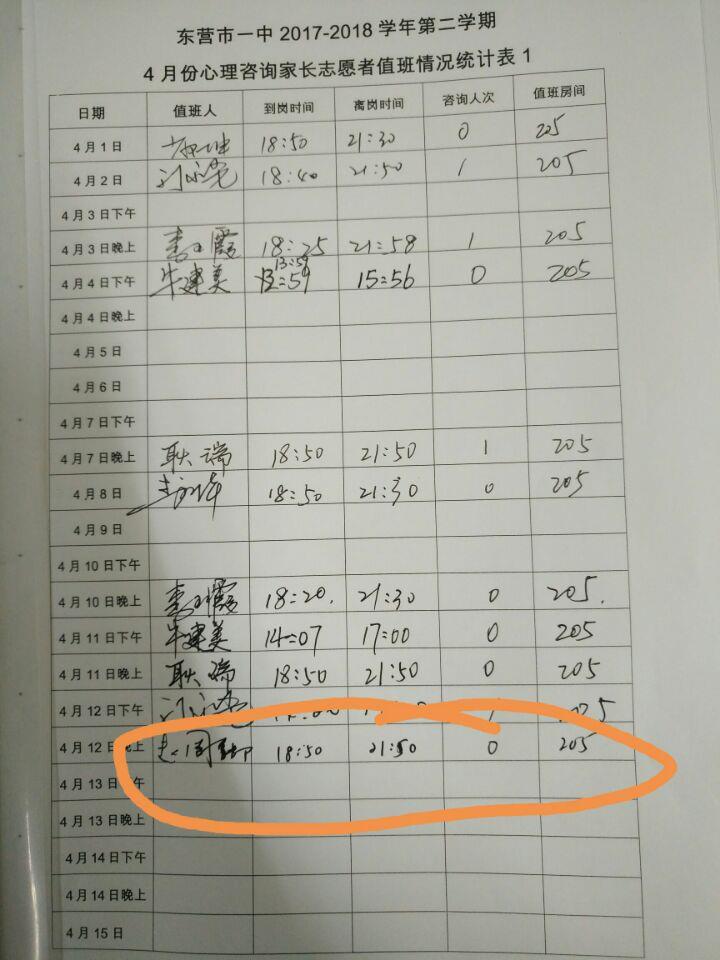 东营市一中 2017-2018 学年第二学期
4 月份心理咨询家长志愿者值班情况统计表 1
日期 值班人 到岗时间 离岗时间 咨询人次 值班房间
4月1日 18:50 21:30 0 205
4月2日 18:40 21:50 1 205
4月3日下午
4月3日晚上 李玉霞 18:25 21:58 1 205
4月4日下午 牛建美 13:59 13:59 15:56 0 205
4月4日晚上
4月5日
4月6日
4月7日下午
4月7日晚上 耿瑞 18:50 21:50 1 205
4月8日 18:50 21:30 0 205
4月9日
4月10日下午
4月10日晚上 李玉霞 18:20. 21:30 0 205.
4月11日下午 牛建美 14:07 17:00 0 205
4月11日晚上 耿瑞 18:50 21:50 0 205
4月12日下午 1 205
4月12日晚上 18:50 21:50 0 205
4月13日下午
4月13日晚上
4月14日下午
4月14日晚上
4月15日